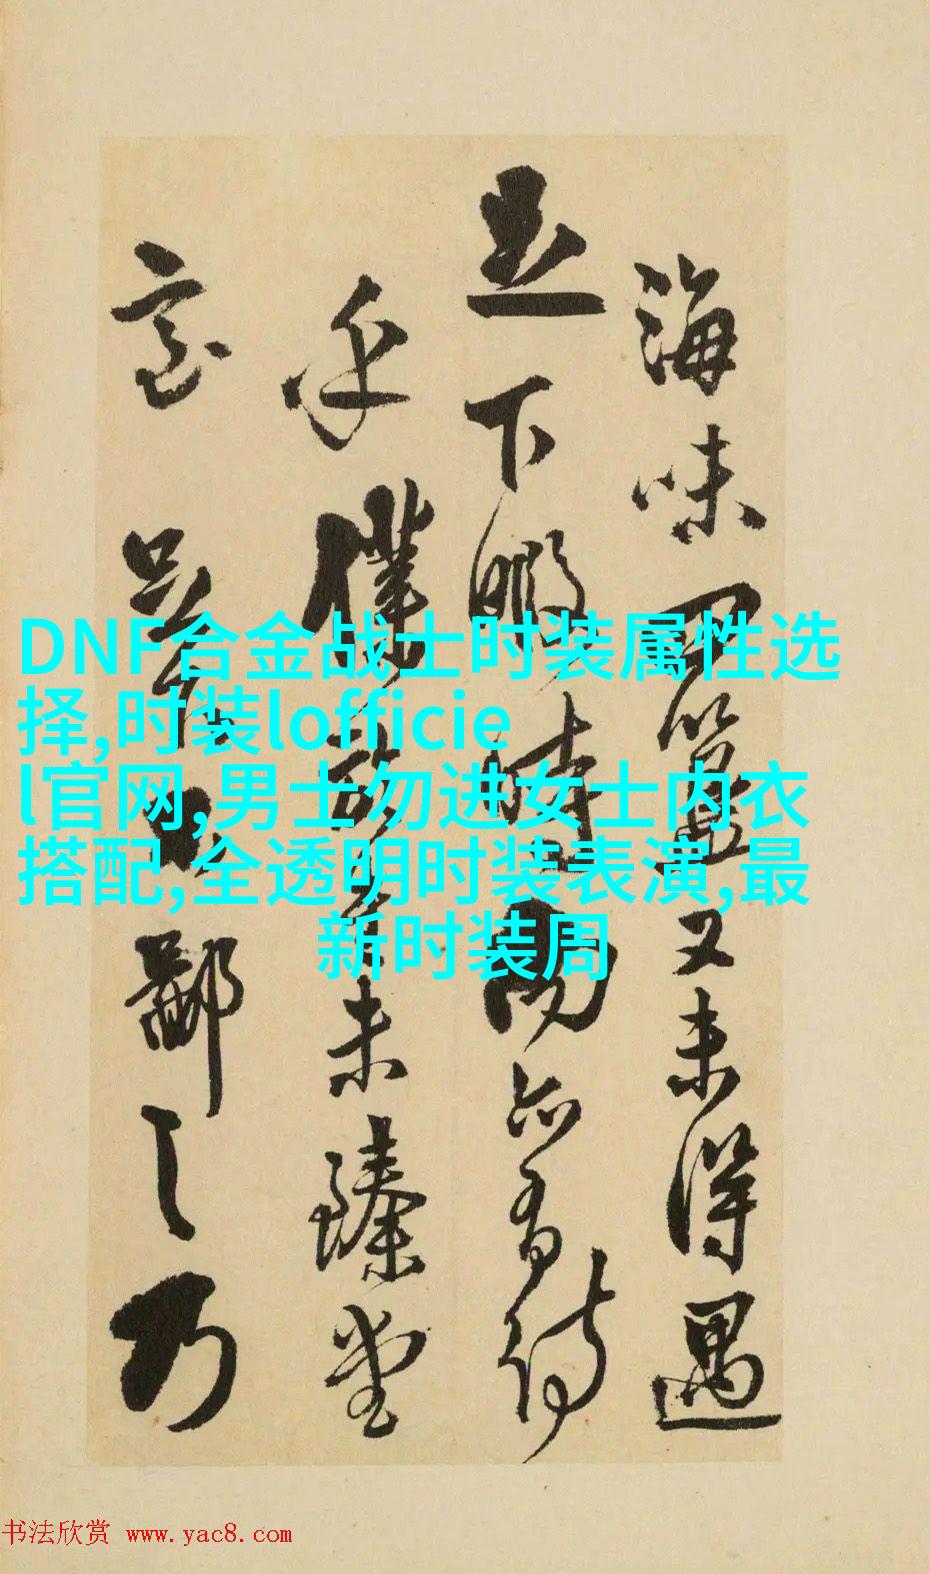 海味
又未得遇
足下暇時
亦有待
乎僕
未臻堂
室
鄙之乃
DNF合金战士时装属性选
择,时装lofficie
l官网,男士勿进女士内衣
搭配,全透明时装表演,最
新时装周
书法欣赏 www.yac8.com